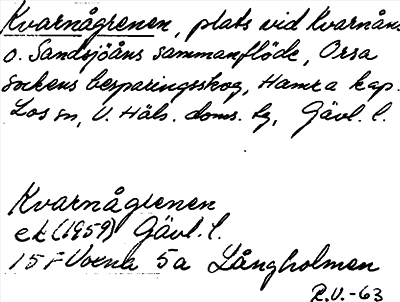 Kvarnågrenen, plats vid Kvarnåns
o. Sandsjöåns sammanflöde, Orsa
sockens besparingsskog, Hamra kap.
Los sn, V. Häls. doms. tg, Gävl. l.
Kvarnågrenen
ek (1959) Gävl. l.
15 F Voxna 5a Långholmen
R.V.-63